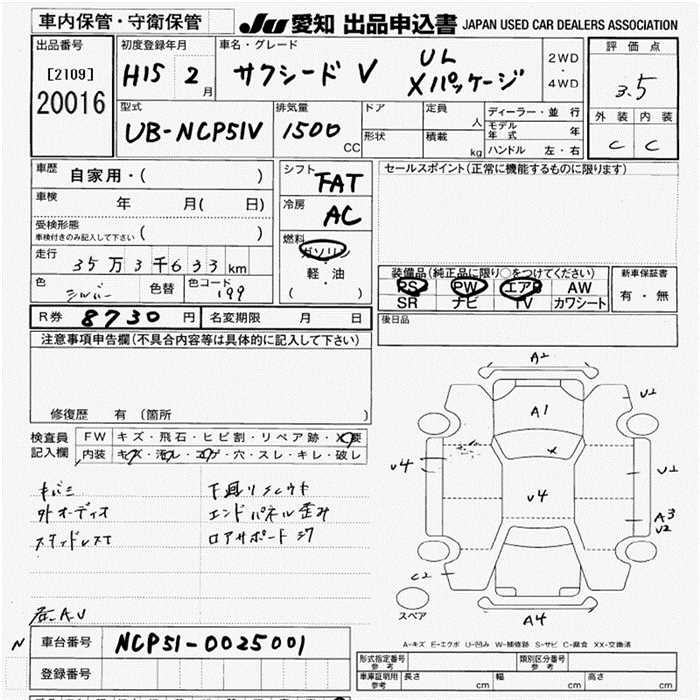 車内保管・守衛保管
JU 愛知 出品申込書 JAPAN USED CAR DEALERS ASSOCIATION
出品番号
[2109]
20016
初度登録年月
H15 2月
車名・グレード
サクシード V UL Xパッケージ
2WD・4WD
評価点
3.5
外装 内装
C C
型式
UB-NCP51V
排気量
1500 CC
ドア
形状
定員 人
積載 kg
ディーラー・並行
モデル年式 年
ハンドル 左・右
車歴 自家用・( )
車検 年 月( 日)
受検形態
車検付きのみ記入して下さい ( )
走行 35万3千633km
色 シルバー 色替 色コード 199
シフト FAT
冷房 AC
燃料
ガソリン
軽・油
( )
セールスポイント(正常に機能するものに限ります)
装備品(純正品に限り○をつけてください)
PS PW エアB AW
SR ナビ TV カワシート
新車保証書
有・無
R券 8730円 名変期限 月 日
後日品
注意事項申告欄(不具合内容等は具体的に記入して下さい)
修復歴 有 (箇所 )
検査員記入欄
FW キズ・飛石・ヒビ割・リペア跡・X要
内装 キズ・汚レ・コゲ・穴・スレ・キレ・破レ
キバミ
外オーディオ
スタッドレスT
下廻りサビ
エンドパネル歪み
ロアサポートジワ
A2
A1
U2
X
U4
U4
U1
A3
U2
C2
A4
スペア
A-キズ E-エクボ U-凹み W-補修跡 S-サビ C-腐食 XX-交換済
車台番号 NCP51-0025001
登録番号
形式指定番号 参考
類別区分番号 参考
車庫証明用 参考 長さ cm 幅 cm 高さ cm